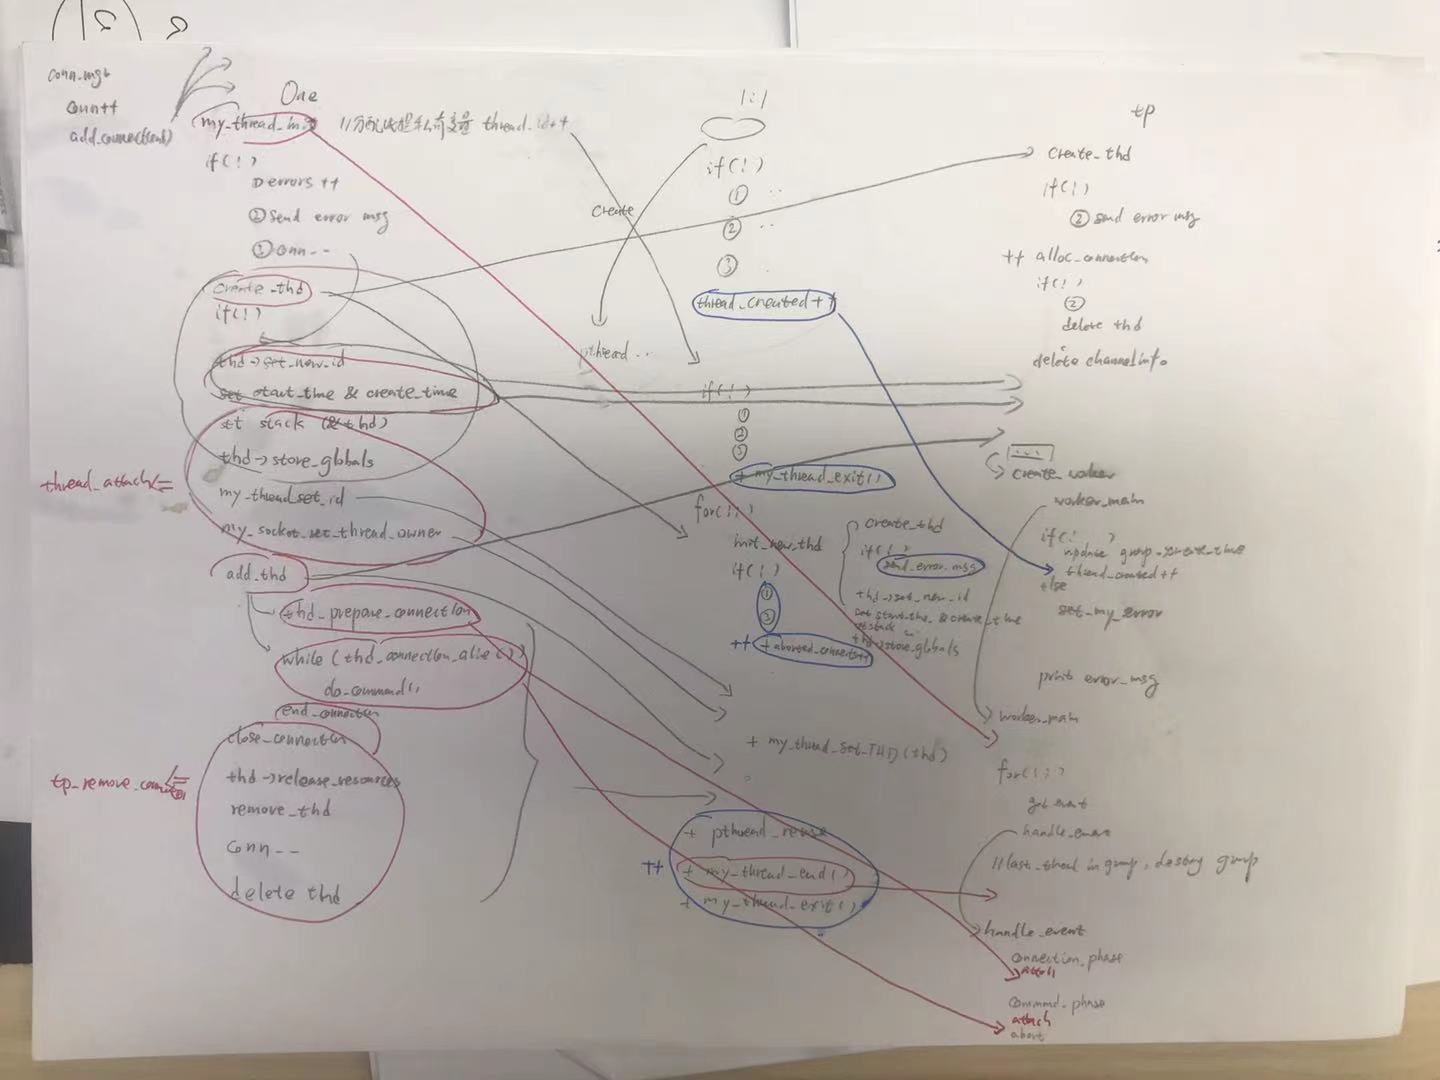 conn_mgr
conn++
add_connection()
One
my_thread_init
//分配线程私有变量 thread_id++
if(!)
① errors ++
② send error msg
③ conn--
create_thd
if(!)
thd->set_new_id
set start_time & create_time
set stack (&thd)
thd->store_globals
thread_attach
my_thread_set_id
my_socket_set_thread_owner
add_thd
thd_prepare_connection
while (thd_connection_alive())
do_command();
end_connection
close_connection
tp_remove_connection
thd->release_resources
remove_thd
conn--
delete thd
1:1
if(!)
①
②
③
create
thread_created++
pthread..
if(!)
①
②
③
+ my_thread_exit()
for(;;)
init_new_thd
if(!)
①
③
++ + aborted_connects++
create_thd
if(!)
send_error_msg
thd->set_new_id
set start_time & create_time
set stack
thd->store_globals
+ my_thread_set_THD(thd)
+ pthread_reuse
++ + my_thread_end()
+ my_thread_exit()
tp
create_thd
if(!)
② send error msg
++ alloc_connection
if(!)
②
delete thd
delete channel info
...
create_worker
worker_main
if(!)
update group_create_time
thread_created++
else
set_my_error
print error_msg
worker_main
for(;;)
get event
handle_event
//last_thread in group, destroy group
handle_event
connection_phase
attach
command_phase
attach
abort